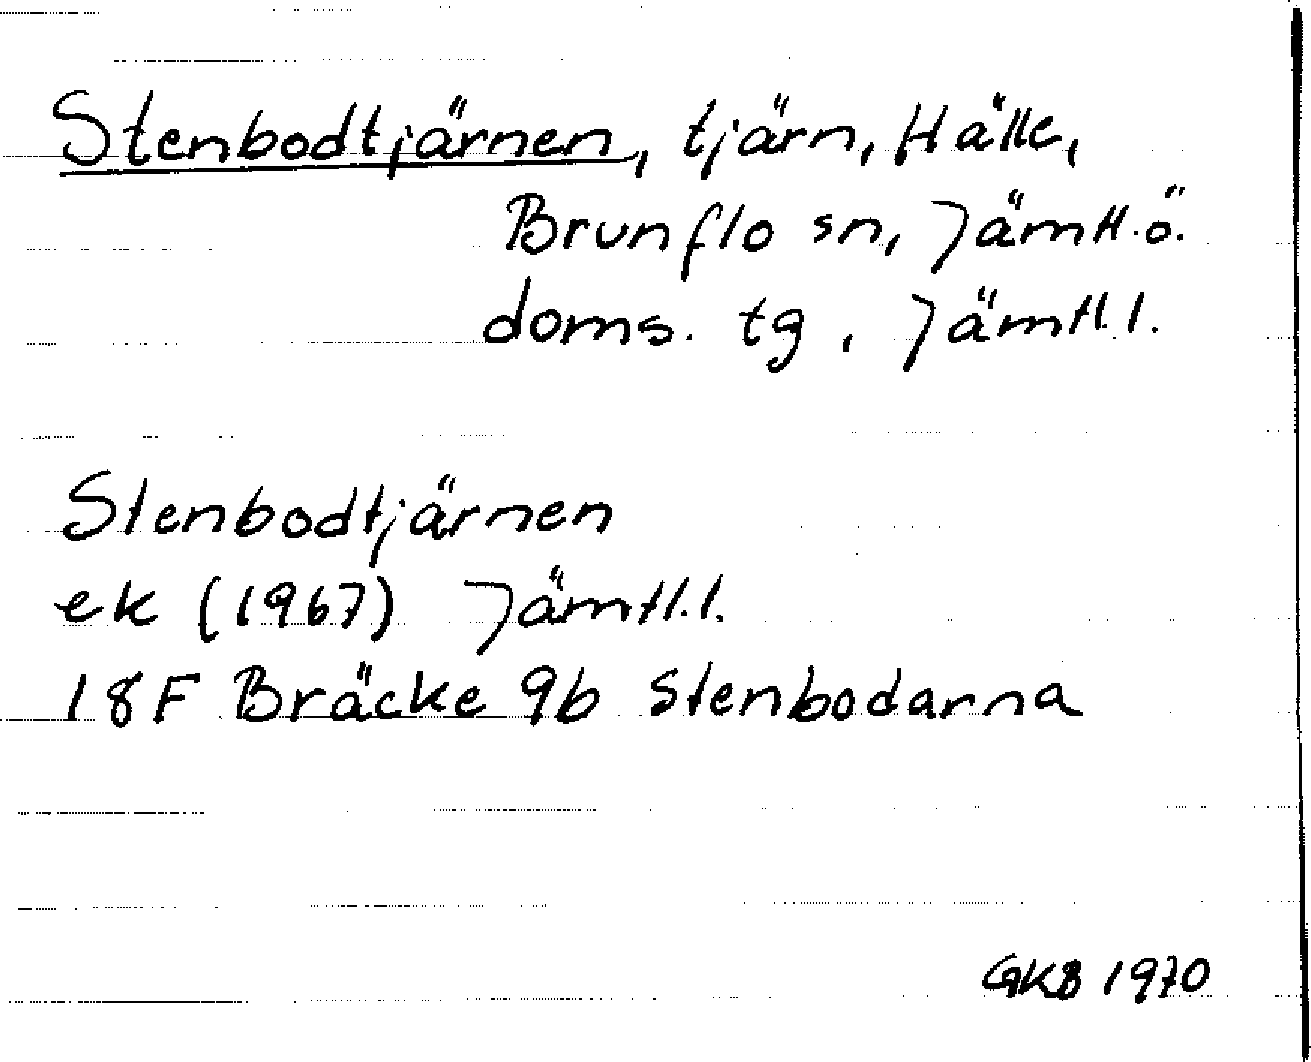 Stenbodtjärnen, tjärn, Hälle,
Brunflo sn, Jämtl.ö.
doms. tg, Jämtl.l.
Stenbodtjärnen
ek (1967) Jämtl.l.
18F Bräcke 9b Stenbodarna
GKB 1970